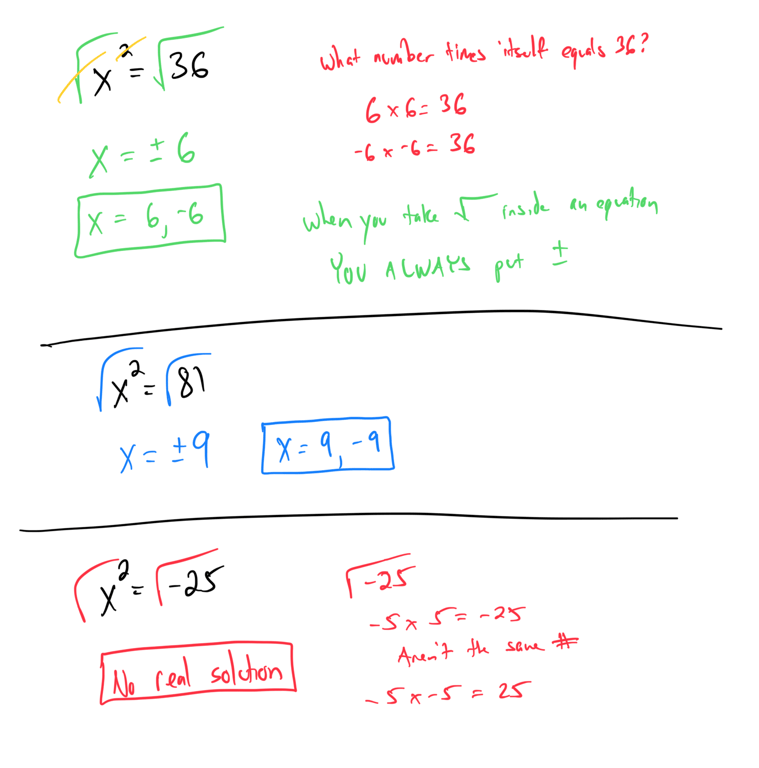 √x² = √36
What number times itself equals 36?
6 × 6 = 36
-6 × -6 = 36
x = ± 6
x = 6, -6
When you take √ inside an equation
YOU ALWAYS put ±
√x² = √81
x = ± 9
x = 9, -9
√x² = √-25
√-25
-5 × 5 = -25
Aren't the same #
No real solution
-5 × -5 = 25